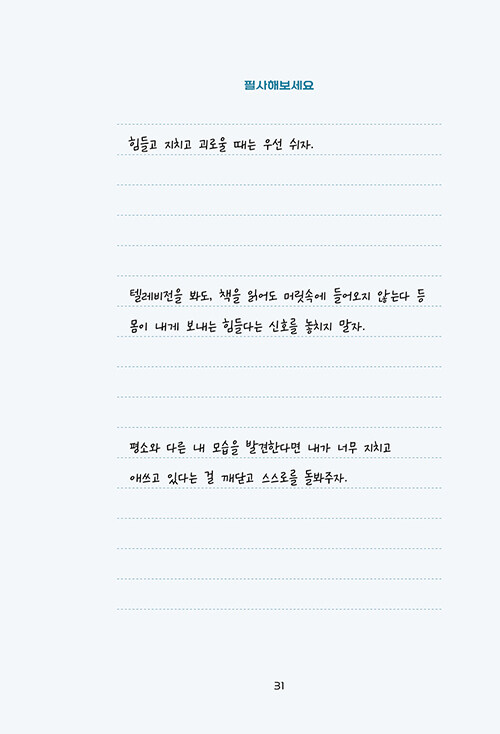 필사해보세요
힘들고 지치고 괴로울 때는 우선 쉬자.
텔레비전을 봐도, 책을 읽어도 머릿속에 들어오지 않는다 등
몸이 내게 보내는 힘들다는 신호를 놓치지 말자.
평소와 다른 내 모습을 발견한다면 내가 너무 지치고
애쓰고 있다는 걸 깨닫고 스스로를 돌봐주자.
31